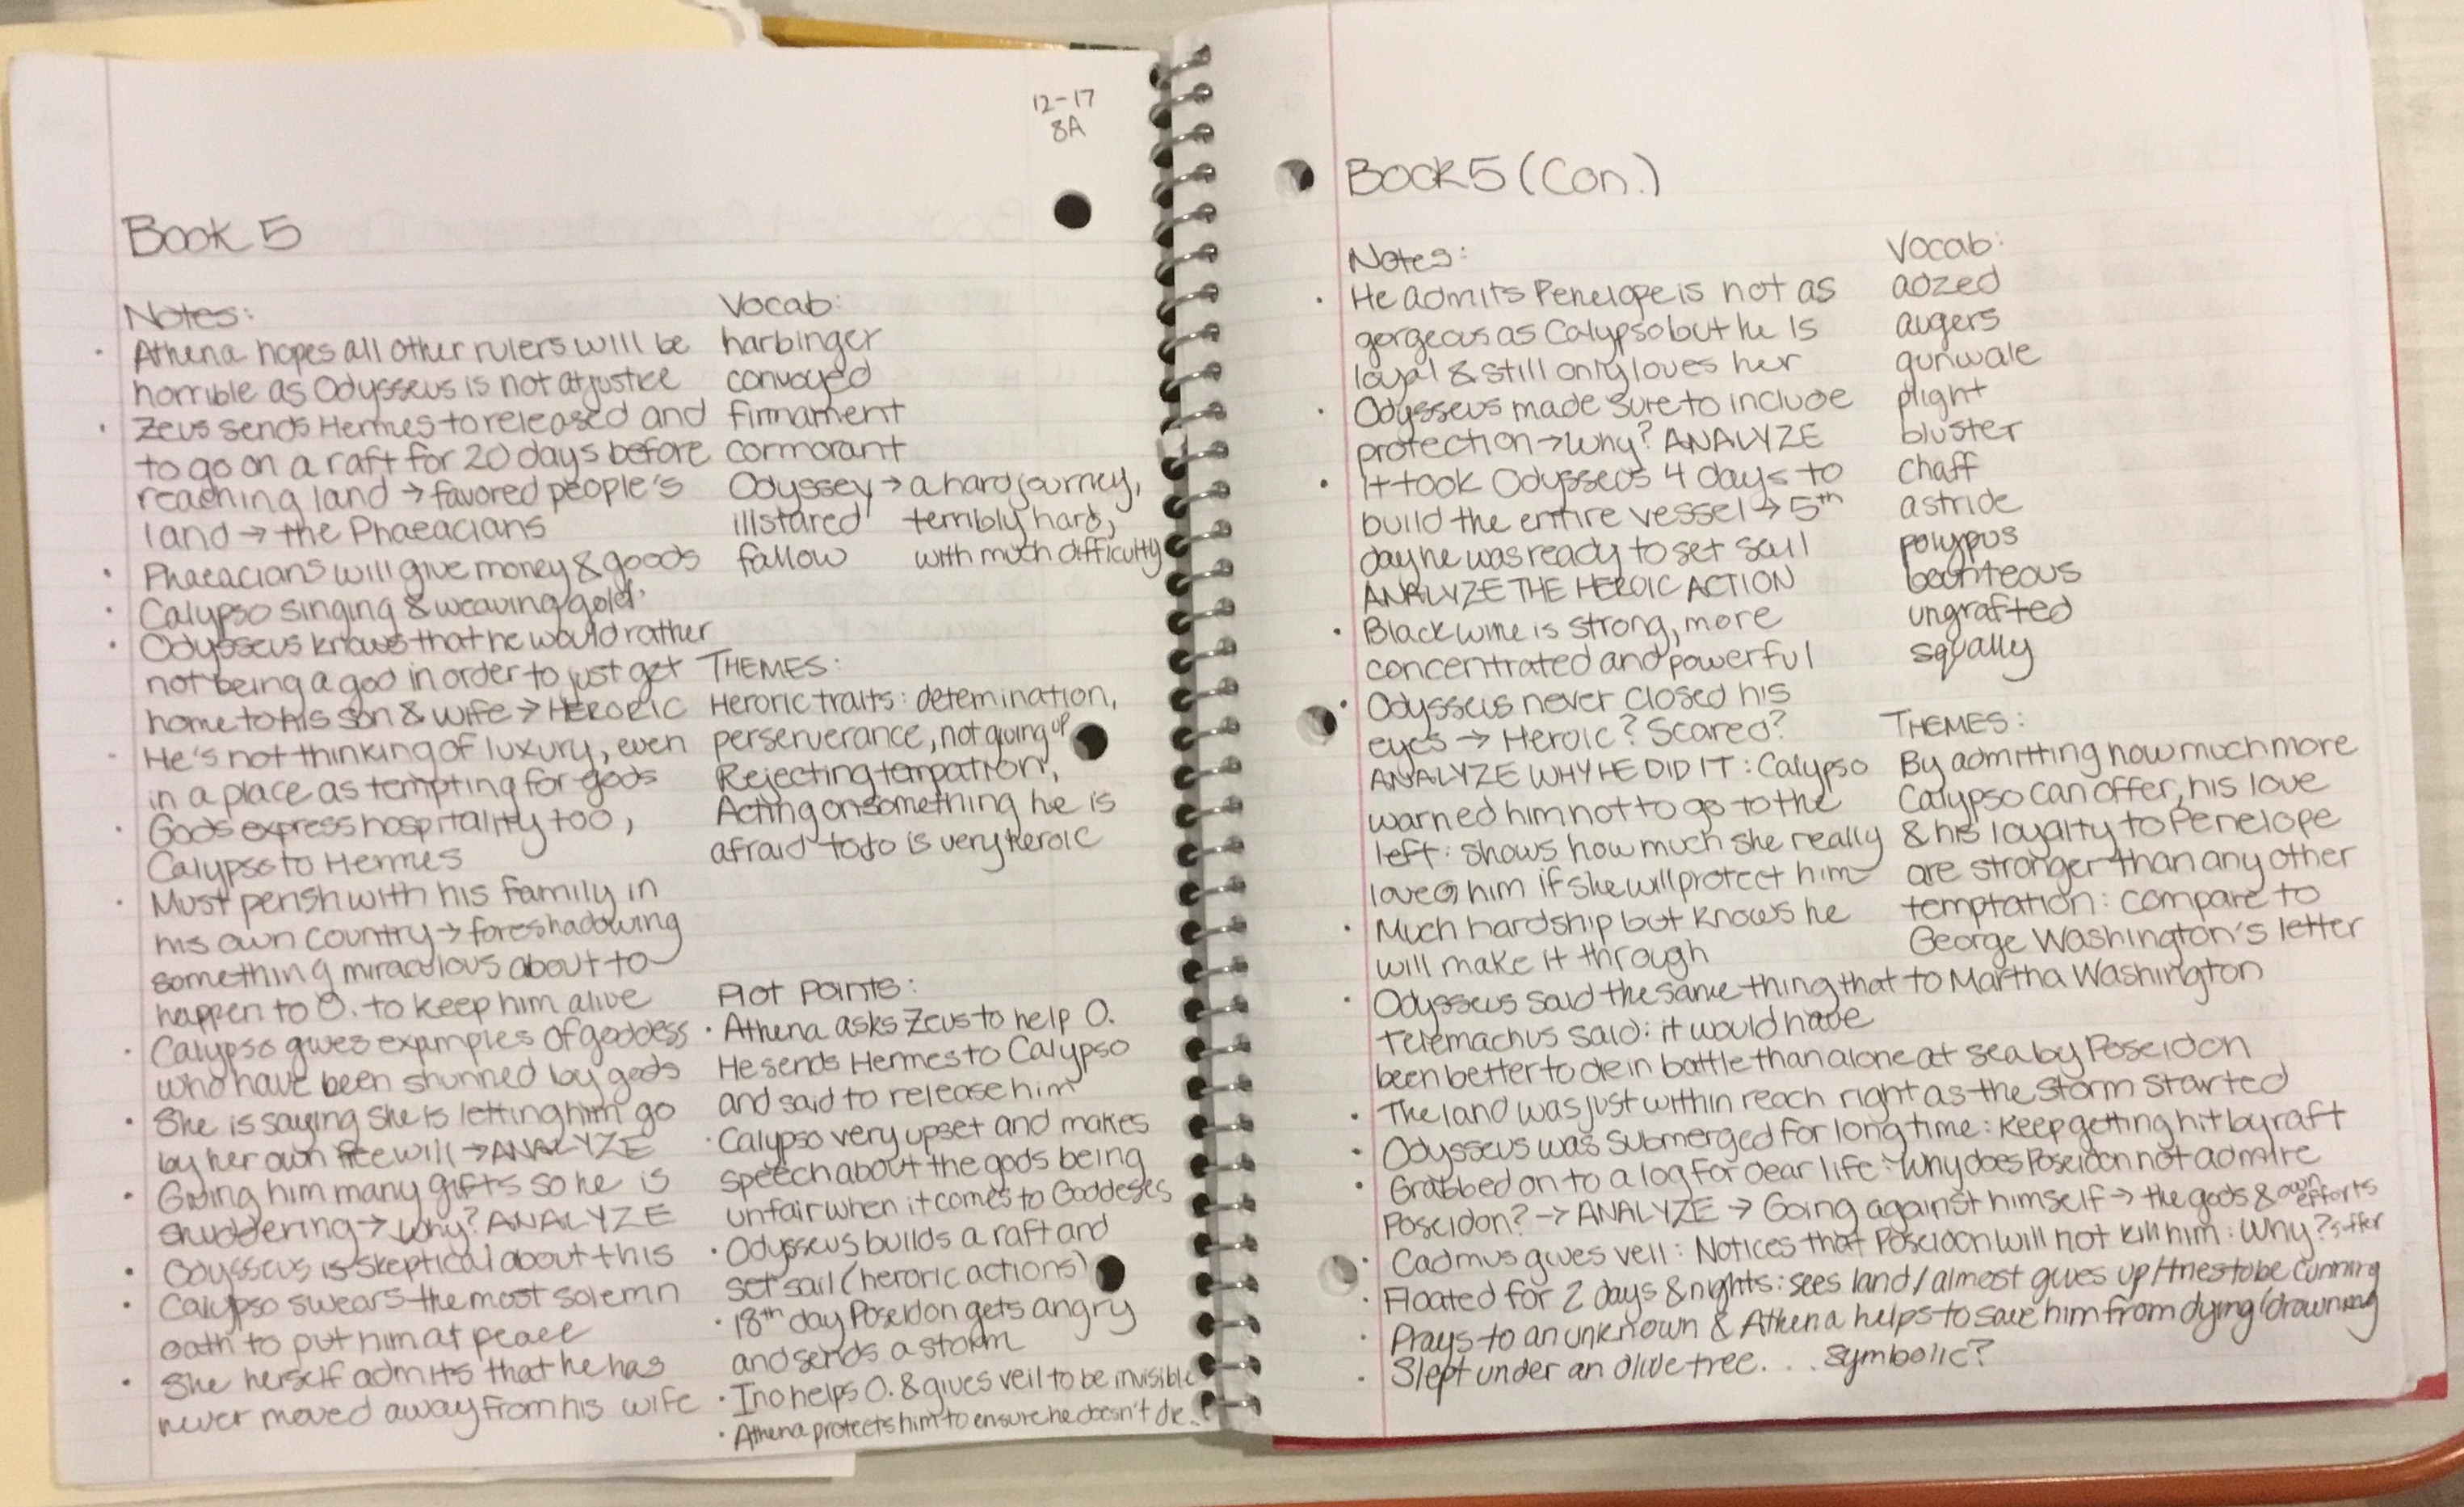 12-17
8A
Book 5
Notes:
· Athena hopes all other rulers will be
horrible as Odysseus is not at justice
· Zeus sends Hermes to released and
to go on a raft for 20 days before
reaching land → favored people's
land → the Phaeacians
· Phaeacians will give money & goods
· Calypso singing & weaving gold
· Odysseus knows that he would rather
not being a god in order to just get
home to his son & wife → HERORIC
- He's not thinking of luxury, even
in a place as tempting for gods
· Gods express hospitality too,
Calypso to Hermes
· Must perish with his family in
his own country → foreshadowing
something miraculous about to
happen to O. to keep him alive
· Calypso gives examples of goddess
who have been shunned by gods
· She is saying she is letting him go
by her own free will → ANALYZE
· Giving him many gifts so he is
shuddering → Why? ANALYZE
· Odysseus is skeptical about this
· Calypso swears the most solemn
oath to put him at peace
· She herself admits that he has
never moved away from his wife
Vocab:
harbinger
convoyed
firmament
cormorant
Odyssey → a hard journey,
illstared terribly hard,
fallow with much difficulty
THEMES:
Heroric traits: detemination,
perserverance, not giving up
Rejecting tempation,
Acting on something he is
afraid to do is very heroic
Plot Points:
· Athena asks Zeus to help O.
He sends Hermes to Calypso
and said to release him
· Calypso very upset and makes
speech about the gods being
unfair when it comes to Goddeses
· Odysseus builds a raft and
set sail (heroric actions)
· 18th day Poseidon gets angry
and sends a storm
· Ino helps O. & gives veil to be invisible
· Athena protects him to ensure he doesn't die.
Book 5 (Con.)
Notes:
· He admits Penelope is not as
gorgeous as Calypso but he is
loyal & still only loves her
· Odysseus made sure to include
protection → Why? ANALYZE
· It took Odysseus 4 days to
build the entire vessel → 5th
day he was ready to set sail
ANALYZE THE HEROIC ACTION
· Black wine is strong, more
concentrated and powerful
· Odysseus never closed his
eyes → Heroic? Scared?
ANALYZE WHY HE DID IT: Calypso
warned him not to go to the
left: shows how much she really
loves him if she will protect him
· Much hardship but knows he
will make it through
· Odysseus said the same thing that
Telemachus said: it would have
been better to die in battle than alone at sea by Poseidon
· The land was just within reach right as the storm started
· Odysseus was submerged for long time: keep getting hit by raft
· Grabbed on to a log for dear life: Why does Poseidon not admire
Poseidon? → ANALYZE → Going against himself → the gods & own efforts
· Cadmus gives veil: Notices that Poseidon will not kill him: Why? suffer
· Floated for 2 days & nights: sees land/almost gives up/tries to be cunning
· Prays to an unknown & Athena helps to save him from dying/drowning
· Slept under an olive tree.... symbolic?
Vocab:
adzed
augers
gunwale
plight
bluster
chaff
astride
polypus
beauteous
ungrafted
squally
THEMES:
By admitting how much more
Calypso can offer, his love
& his loyalty to Penelope
are stronger than any other
temptation: compare to
George Washington's letter
to Martha Washington